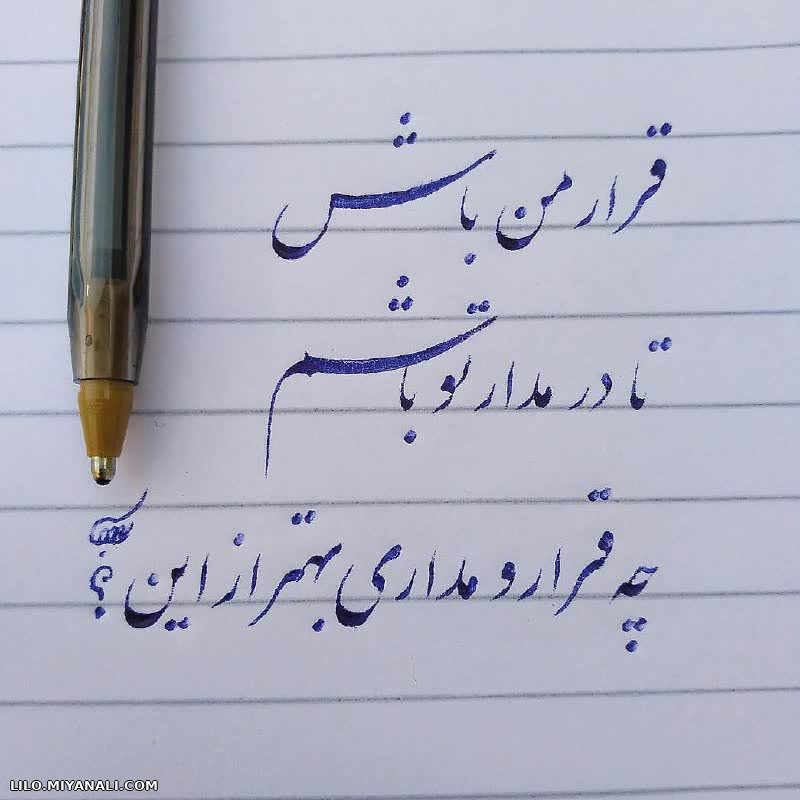 قرار من باش
تا در مدار تو باشم
چه قرار و مداری بهتر از این؟
LILO.MIYANALI.COM